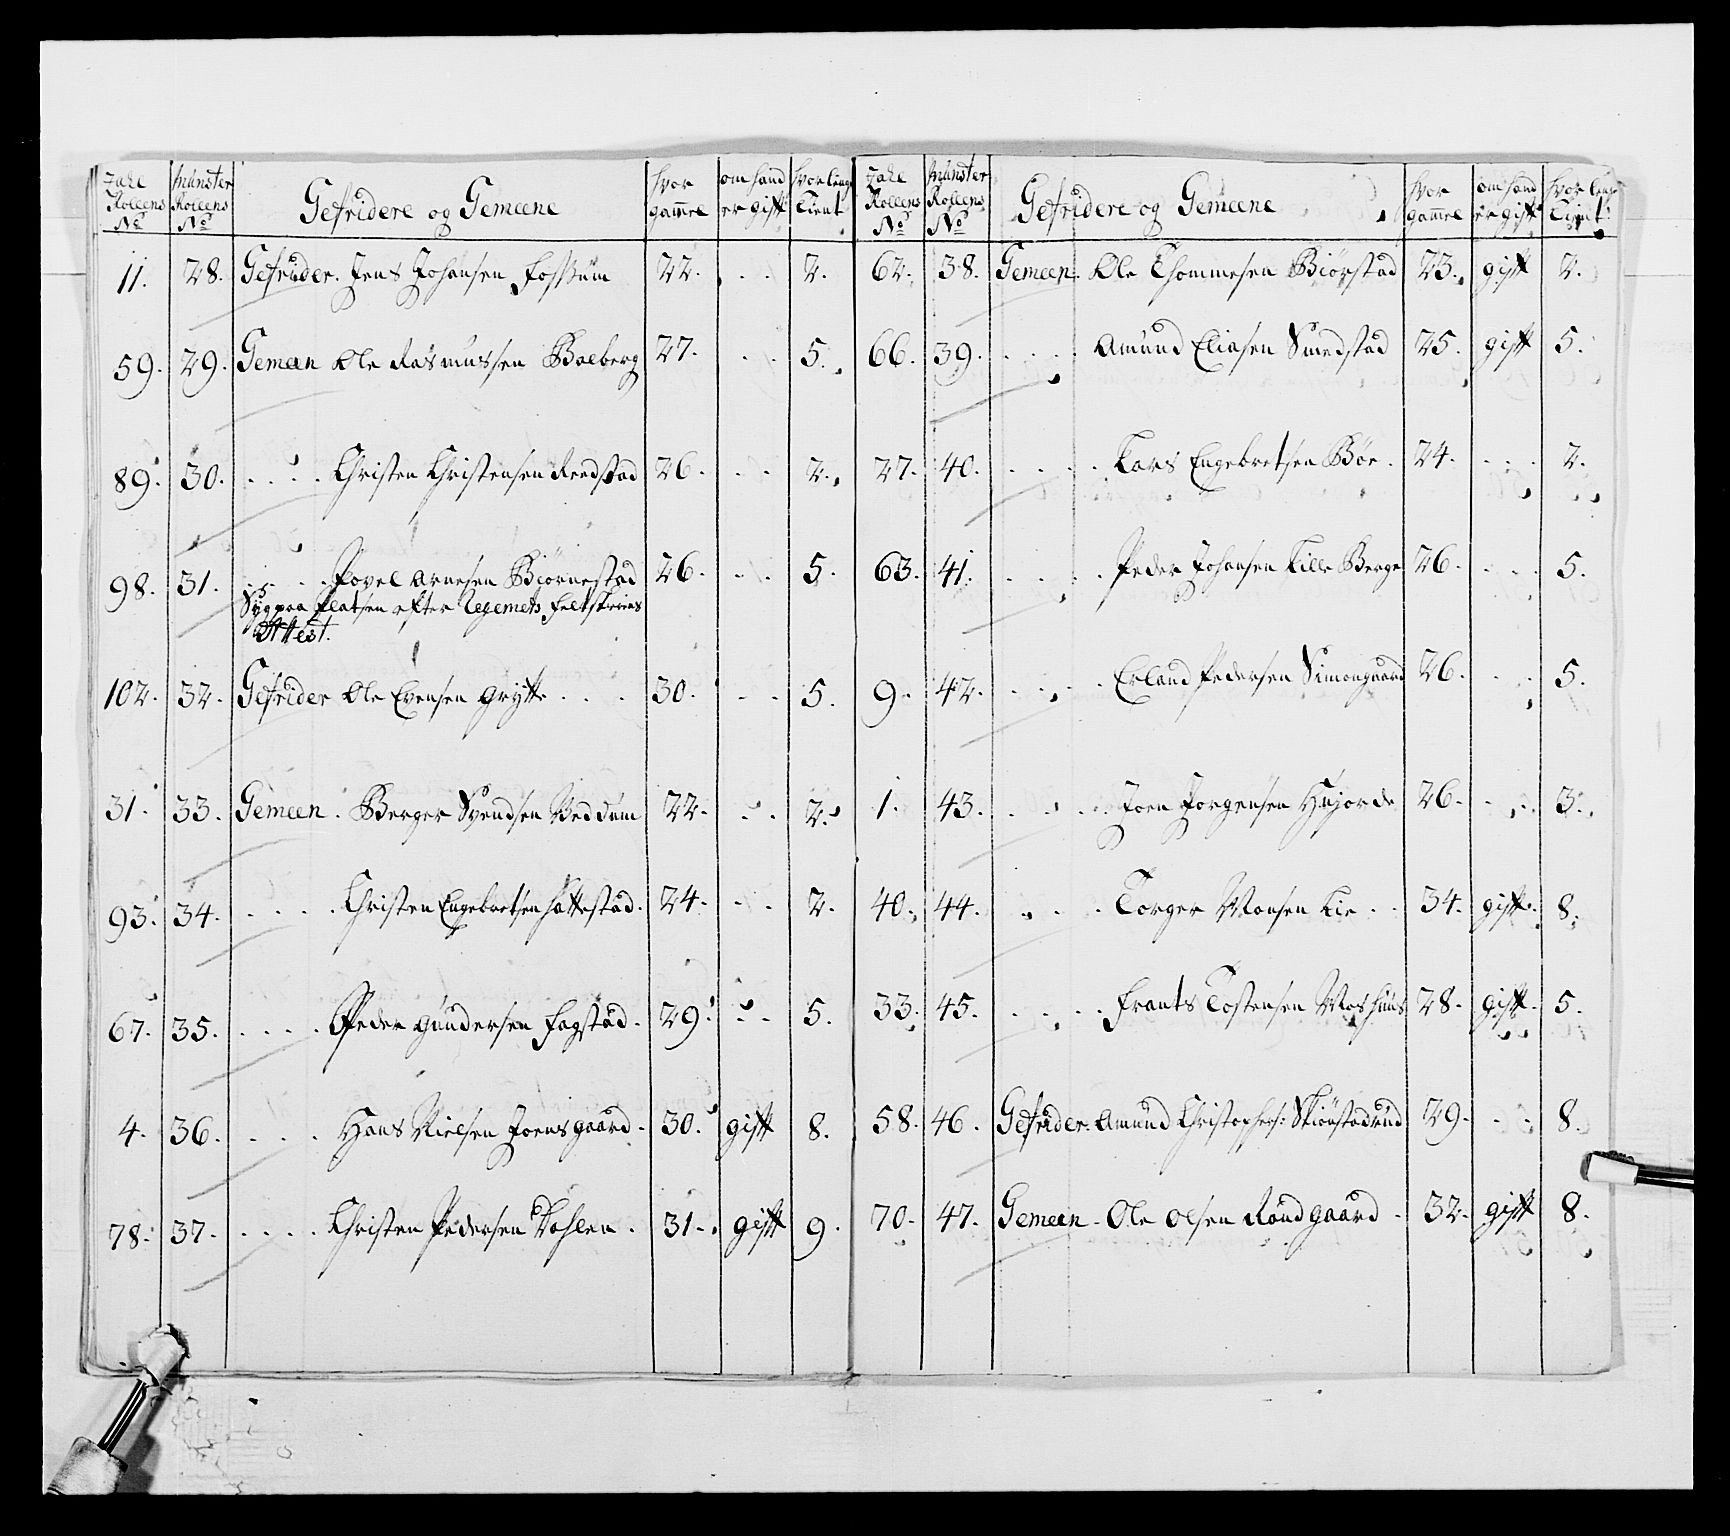 Zahl Rollens No | Münster Rollens No | Gefridere og Gemeene | hvor gaml | om hand er gift | hvor lenge Tient
11. | 28. | Gefrider. Jens Johansen Fossum | 22. | . . | 2.
59. | 29. | Gemeen Ole Rasmussen Boeberg | 27. | . . | 5.
89. | 30. | . . . . Christen Christensen Reedstad | 26. | . . | 2.
98. | 31. | . . . . Povel Arnesen Biørnestad | 26. | . . | 5.
Syg paa Platsen efter Regemets feltskiers
Attest.
102. | 32. | Gefrider Ole Evensen Grytte . . . | 30. | . . | 5.
31. | 33. | Gemeen . Berger Svendsen Veddum | 22. | . . | 2.
93. | 34. | . . . . Christen Engebretsen Hattestad. | 24. | . . | 2.
67. | 35. | . . . . Peder Gundersen Fagstad. | 29. | . . | 5.
4. | 36. | . . . Hans Nielsen Joensgaard. | 30. | gift | 8.
78. | 37. | . . . . Christen Pedersen Dahlen. | 31. | gift | 9.
Zahl Rollens No | Münster Rollens No | Gefridere og Gemeene | hvor gaml | om hand er gift | hvor lenge Tient
62. | 38. | Gemeen. Ole Thommesen Biørstad | 23. | gift | 2.
66. | 39. | . . . . Amund Eliasen Smedstad | 25. | gift | 5.
27. | 40. | . . . . Lars Engebretsen Bøe. | 24. | . . . | 2.
63. | 41. | . . . . Peder Johansen Lille Berge | 26. | . . . | 5.
9. | 42. | . . . . Erland Pedersen Simongaard | 26. | . . . | 5.
1. | 43. | . . . . Joen Jorgensen | 26. | . . . | 3.
40. | 44. | . . . . Torger Monsen Lie . . | 34. | gift. | 8.
33. | 45. | . . . . Frants Tostensen Moshuus | 28. | gift. | 5.
58. | 46. | Gefrider. Amund Christophers: Skiønstadrud | 29. | . . | 8.
70. | 47. | Gemeen. Ole Olsen Rundgaard . | 32. | gift | 8.